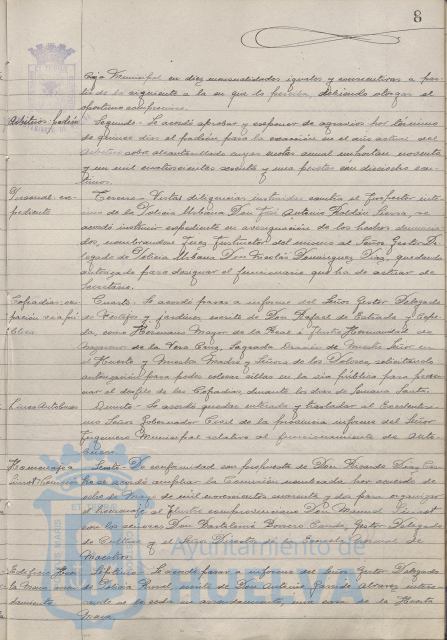 8
Caja Municipal en diez mensualidades iguales y consecutivas a par-
tir de la siguiente a la en que lo perciba, debiendo otorgar el
oportuno compromiso.
Arbitrios. padrón Segundo- Se acordó aprobar y exponer de agravios por término
de quince días el padrón para la exacción en el año actual del
arbitrio sobre alcantarillado cuyas cuotas anual importan noventa
y un mil cuatrocientas setenta y una pesetas con dieciocho cen-
timos.
Personal. ex- Tercero- Vistas diligencias instruidas contra el Inspector inte-
pediente rino de la Policía Urbana Don José Antonio Roldán Sierra, se
acordó instruir expediente en averiguación de los hechos denuncia-
dos, nombrándose Juez Instructor del mismo al Señor Gestor De-
legado de Policía Urbana Don Nicolás Domínguez Díaz, quedando
autorizado para designar el funcionario que ha de actuar de
Secretario.
Cofradías. ocu- Cuarto- Se acordó pasar a informe del Señor Gestor Delegado
pación vía pú- de Festejos y jardines escrito de Don Rafael de Estrada y Cepe-
blica da, como Hermano Mayor de la Real e Ilustre Hermandad de
Nazarenos de la Vera Cruz, Sagrada Oración de Nuestro Señor en
el Huerto y Nuestra Madre y Señora de los Dolores, solicitando
autorización para poder colocar sillas en la vía pública para presen-
ciar el desfile de las Cofradías, durante los días de Semana Santa.
Línea Autobuses Quinto- Se acordó quedar enterado y trasladar al Excelentísi-
mo Señor Gobernador Civil de la provincia informe del Señor
Ingeniero Municipal relativo al funcionamiento de Auto-
buses.
Homenaje a Sexto- De conformidad con propuesta de Don Ricardo Díaz
se acordó ampliar la Comisión nombrada por acuerdo de
ocho de Mayo de mil novecientos cuarenta y dos para organizar
el homenaje al Ilustre comprovinciano Don Manuel Siurot
con los señores Don Bartolomé Romero Conde, Gestor Delegado
de Cultura y el Señor Director de la Escuela Normal de
Maestros.
Séptimo- Se acordó pasar a informe del Señor Gestor Delegado
de Policía Rural escrito de Don Antonio Garrido Alvarez intere-
sando se le ceda en arrendamiento, una casa de la Huerta
Mena.
Ayuntamiento de
HUELVA